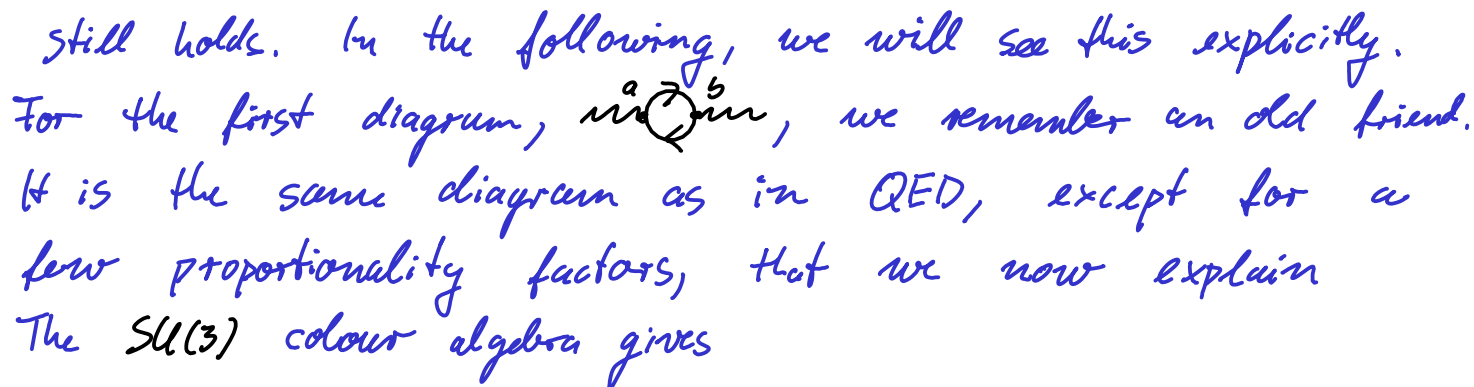 still holds. In the following, we will see this explicitly.
a b
For the first diagram, , we remember an old friend.
It is the same diagram as in QED, except for a
few proportionality factors, that we now explain
The SU(3) colour algebra gives